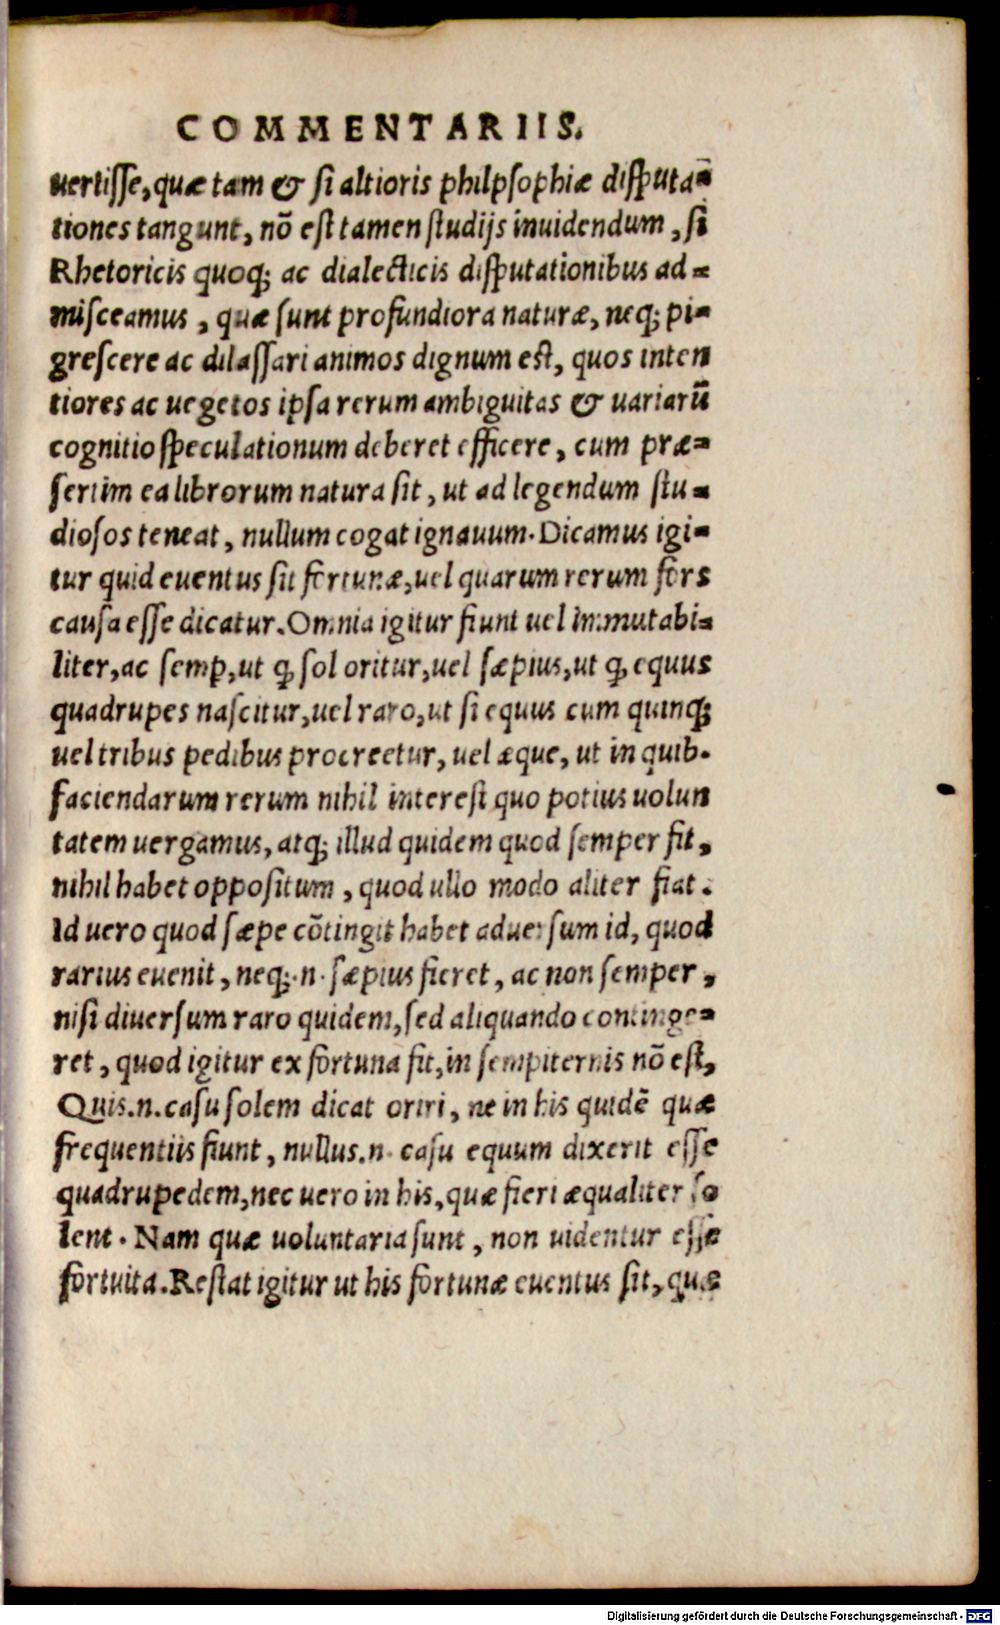 COMMENTARIIS.
uertisse, quæ tam & si altioris philpsophiæ disputa=
tiones tangunt, nõ est tamen studijs inuidendum, si
Rhetoricis quoq; ac dialecticis disputationibus ad=
misceamus, quæ sunt profundiora naturæ, neq; pi=
grescere ac dilassari animos dignum est, quos inten
tiores ac uegetos ipsa rerum ambiguitas & uariarũ
cognitio speculationum deberet efficere, cum præ=
sertim ea librorum natura sit, ut ad legendum stu=
diosos teneat, nullum cogat ignauum. Dicamus igi=
tur quid euentus sit fortunæ, uel quarum rerum fors
causa esse dicatur. Omnia igitur fiunt uel immutabi=
liter, ac semꝑ, ut ꝙ sol oritur, uel sæpius, ut ꝙ equus
quadrupes nascitur, uel raro, ut si equus cum quinq;
uel tribus pedibus procreetur, uel æque, ut in quib.
faciendarum rerum nihil interest quo potius uolun
tatem uergamus, atq; illud quidem quod semper fit,
nihil habet oppositum, quod ullo modo aliter fiat.
Id uero quod sæpe cõtingit habet aduersum id, quod
rarius euenit, neq;.n. sæpius fieret, ac non semper,
nisi diuersum raro quidem, sed aliquando continge=
ret, quod igitur ex fortuna fit, in sempiternis nõ est,
Quis.n. casu solem dicat oriri, ne in his quidẽ quæ
frequentiis fiunt, nullus.n. casu equum dixerit esse
quadrupedem, nec uero in his, quæ fieri æqualiter so
lent. Nam quæ uoluntaria sunt, non uidentur esse
fortuita. Restat igitur ut his fortunæ euentus sit, quæ
Digitalisierung gefördert durch die Deutsche Forschungsgemeinschaft - DFG